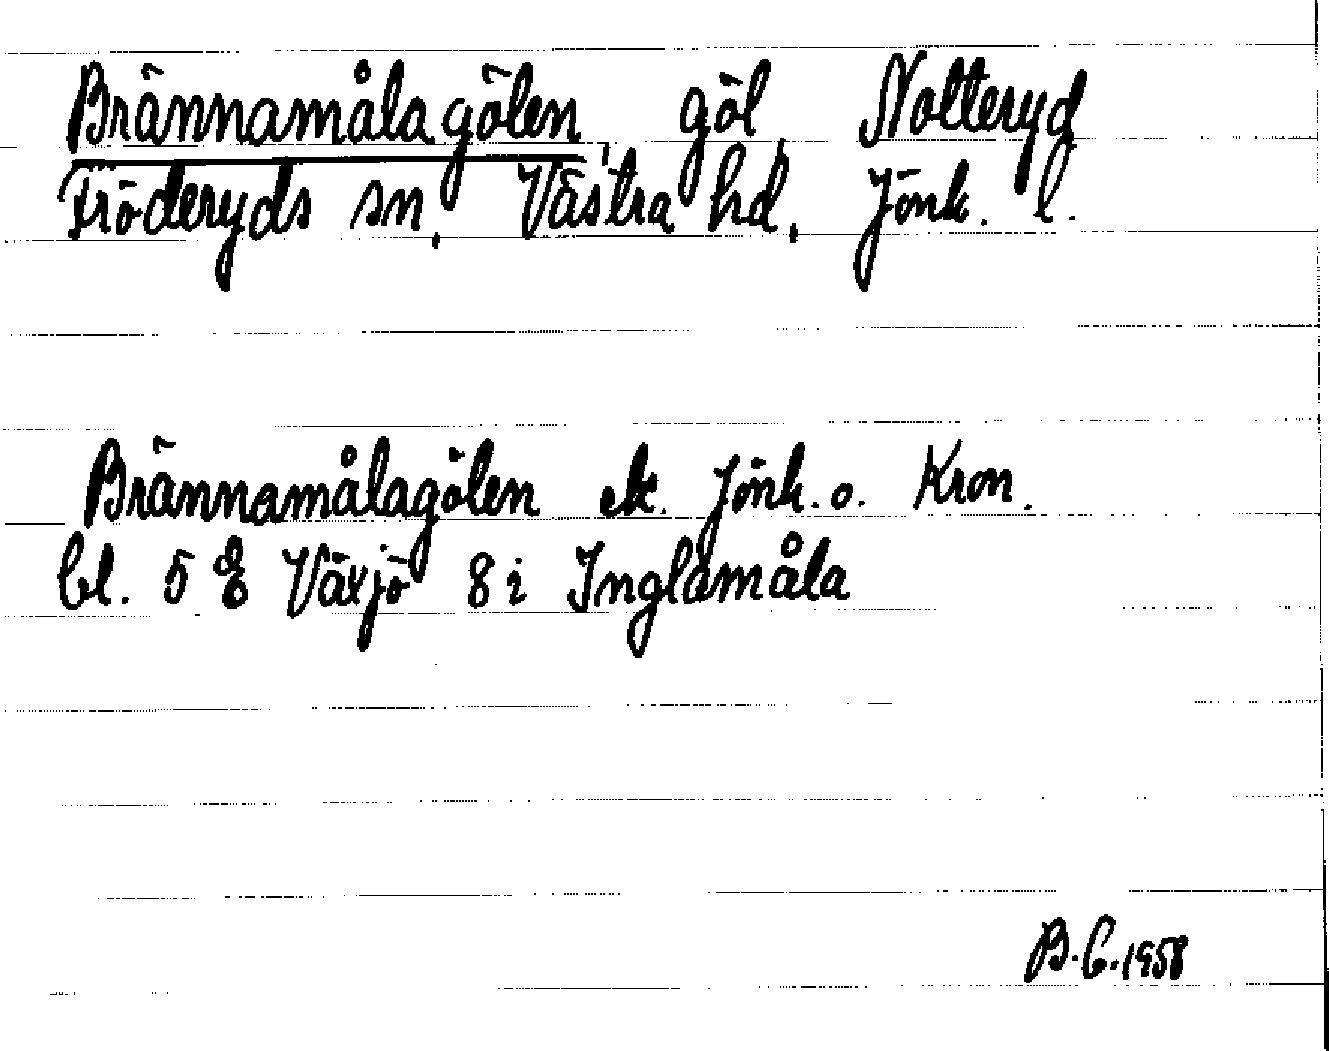 Brännamålagölen, göl, Nolteryd
Fröderyds sn, Västra hd, Jönk. l.
Brännamålagölen ek. Jönk. o. Kron.
bl. 5 & Växjö 8 i Inglamåla
B.G. 1958